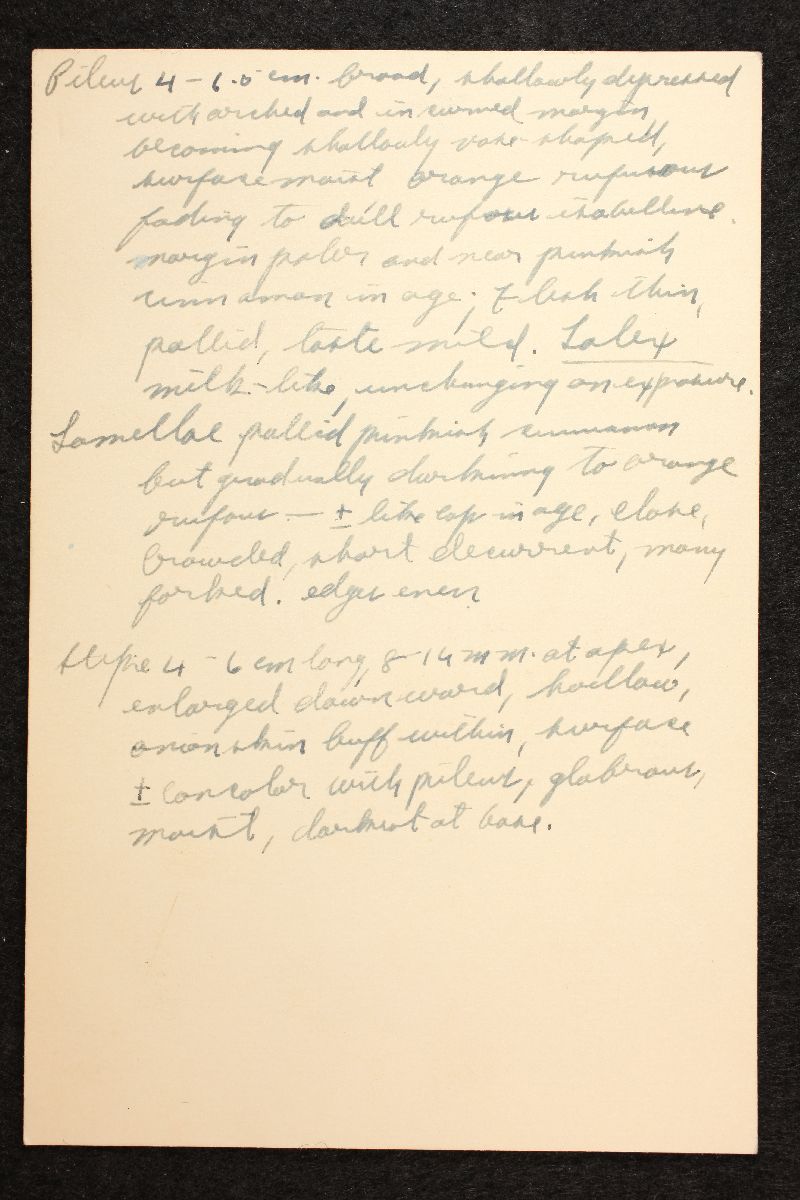 Pileus 4 - 6.5 cm. broad, shallowly depressed
with arched and incurved margin,
becoming shallowly vase-shaped,
surface moist orange rufusous
fading to dull rufous isabelline.
margin paler and near pinkish
cinnamon in age; Flesh thin,
pallid, taste mild. Latex
milk-like, unchanging on exposure.
Lamellae pallid pinkish cinnamon
but gradually darkning to orange
rufous — ± like cap in age, close,
crowded, short decurrent, many
forked. edges even
Stipe 4 - 6 cm long, 8-14 mm. at apex,
enlarged downward, hollow,
onionskin buff within, surface
± concolor with pileus, glabrous,
moist, darkest at base.